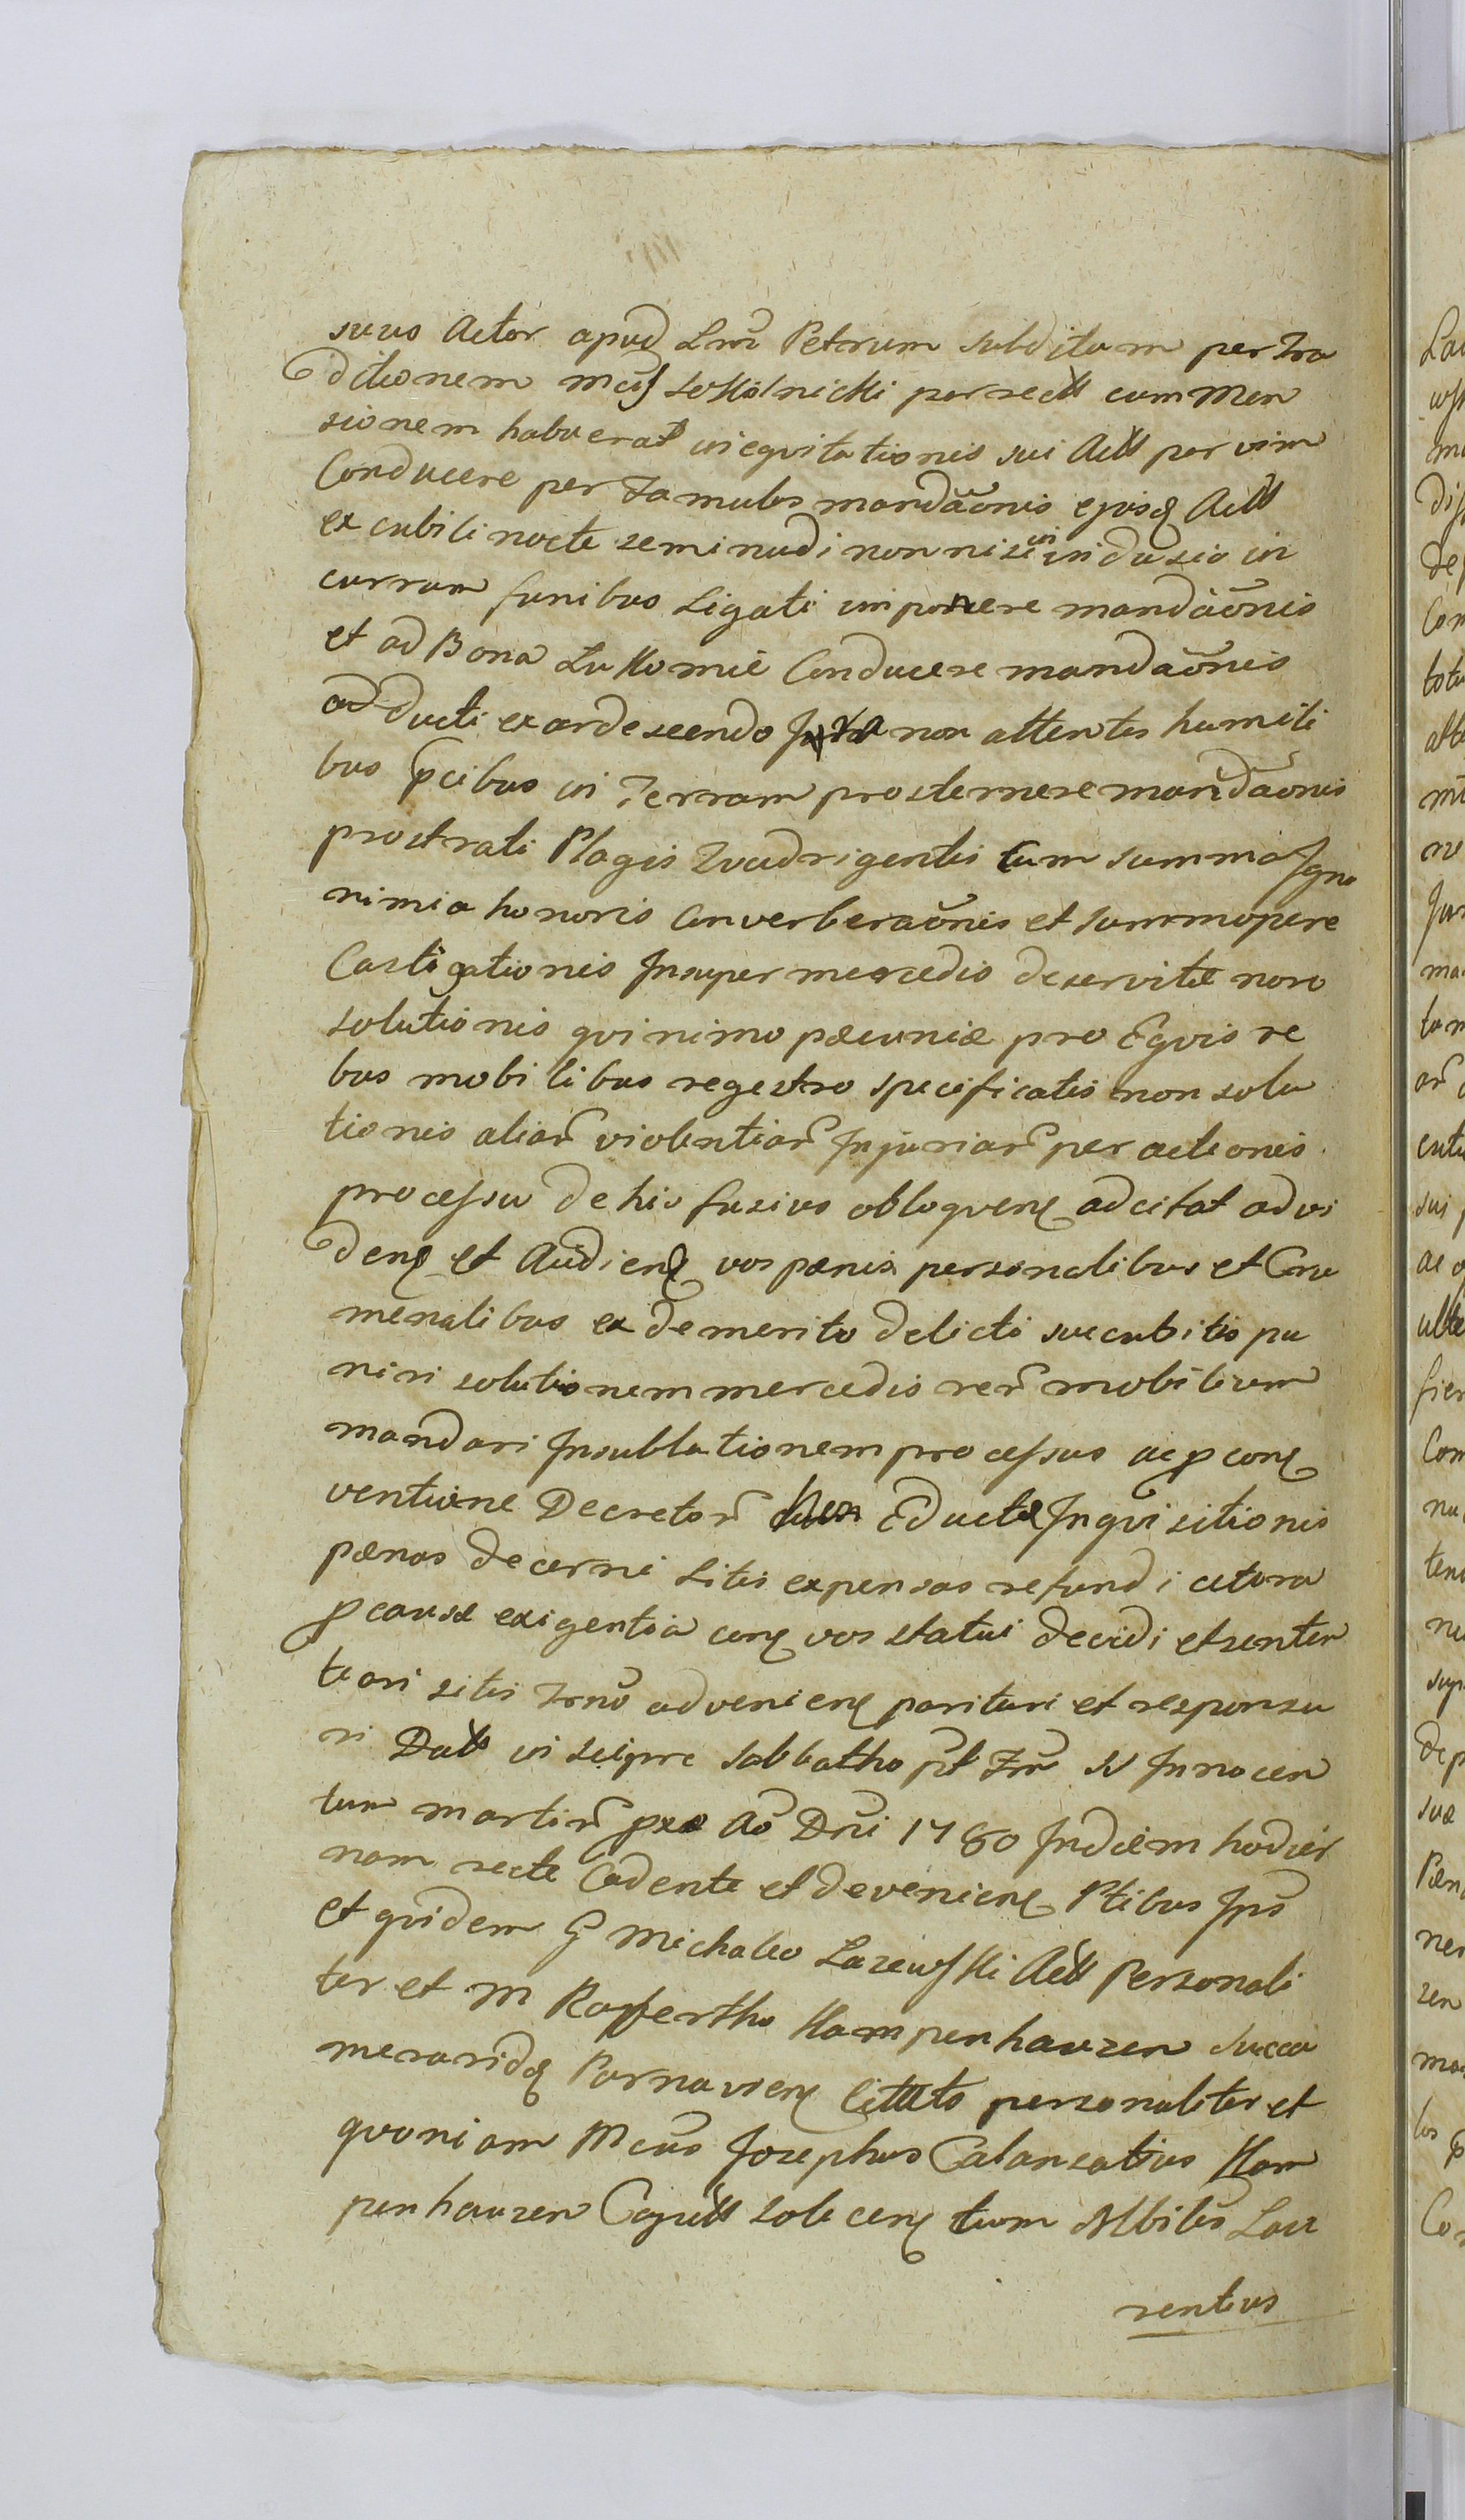 suus Actor apud Lrm Petrum subditum per Tra
ditionem Mcis Sokolnicki per sectt cum Man
sionem habuerat inequitationis sui Actt per vim
Conducere per Famulos mandãonis ejusq Actt
ex cubili nocte seminudi non nisi in indusio in
currum funibus Ligati imponere mandãonis
et ad Bona Lukomie Conducere mandãonis
adducti exardescendo Jra non attentis humili
bus pcibus in Terram prosternere mandãonis
prostrati Plagis Quadrigentis cum summa Jgno
nimia honoris Converberãonis et summopere
Castigationis Jnsuper mercedis deservitæ non
solutionis quinimo pæcuniæ pro Equis re
bus mobilibus regestro specificatis non solu
tionis aliar violentiar Jnjuriar per actionis
processu de his fusius obloquen adcitat ad vi
den et Audien vos pænis personalibus et Cru
menalibus ex demerito delicti succubitis pu
niri solutionem mercedis rer mobilium
mandari Jnsublationem processus ac p con
ventione Decretor Eductæ Jnquisitionis
pænas decerni Litis expensas refundi cetera
p causæ exigentia cen vos statui decidi et senten
tiari sitis Trno advenien parituri et responsu
ri Datt in Seipre Sabbatho pt Fm SS Jnnocen
tum martir pxo Ao Dni 1780 Jndiem hodier
nam recte Cadente et devenien Ptibus Jpis
et quidem G Michaleo Lazewski Actt Personali
ter et M Rappertho Kampenhauzen Succa
merarido Parnavien Cittto personaliter et
quoniam Mcus Josephus Calansatius Kam
penhauzen Capitt Solecen tum Nbilis Lau
rentius